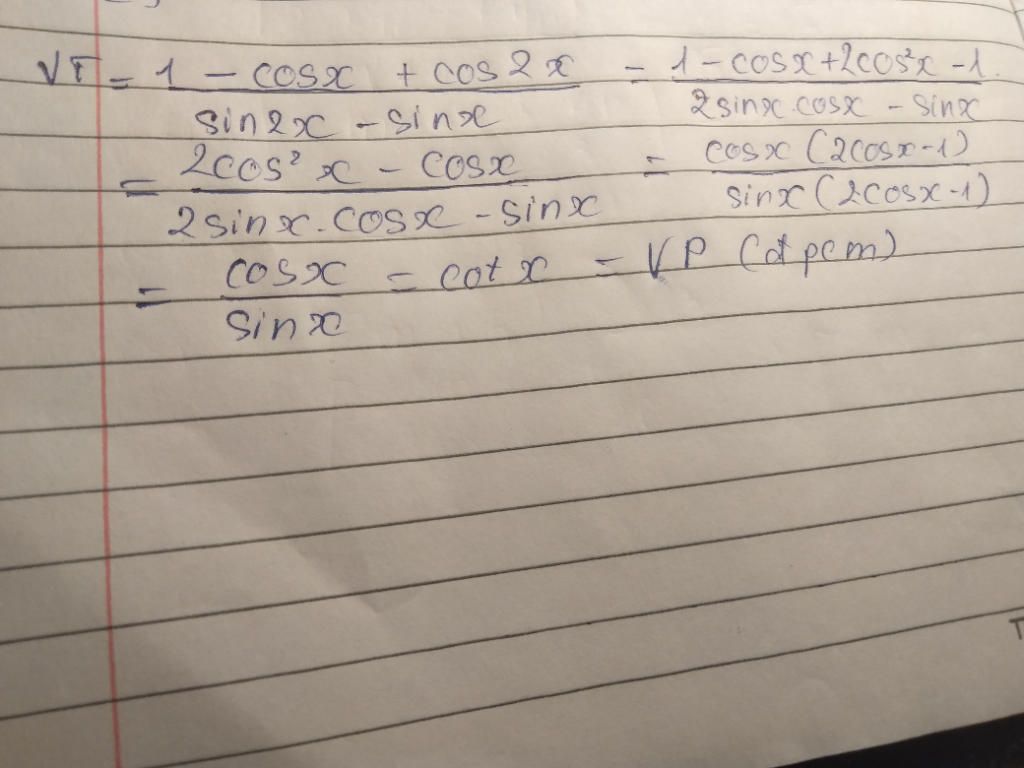 VT = (1 - cosx + cos2x)/(sin2x - sinx) = (1 - cosx + 2cos²x - 1)/(2sinx.cosx - sinx)
= (2cos²x - cosx)/(2sinx.cosx - sinx) = (cosx(2cosx - 1))/(sinx(2cosx - 1))
= cosx/sinx = cotx = VP (đpcm)